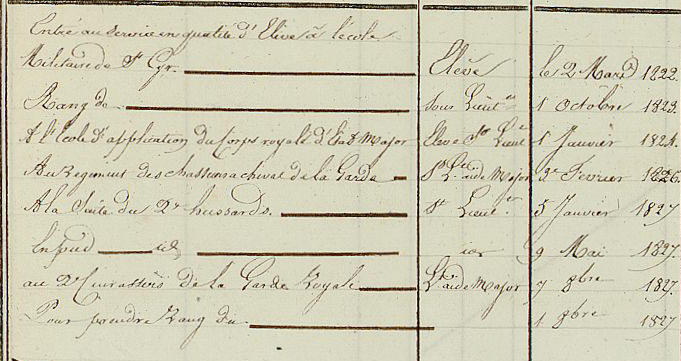 Entré au service en qualité d'Elève à l'école
Militaire de St Cyr. Elève le 2 Mars 1822.
Rang de Sous Lieut. 1 Octobre 1823.
A l'école d'application du Corps royale d'Etat Major Elève Ss Lieut 1 Janvier 1824.
Au Regiment des chasseurs a cheval de la Garde Sst aide Major 2 Fevrier 1826.
A la Suite du 2e hussards. St Lieut. 5 Janvier 1827
En pied id id 9 Mai 1827.
au 2e Cuirassiers de la Garde Royale Lt. aide Major 7 8bre 1827.
Pour prendre Rang du 1 8bre 1827